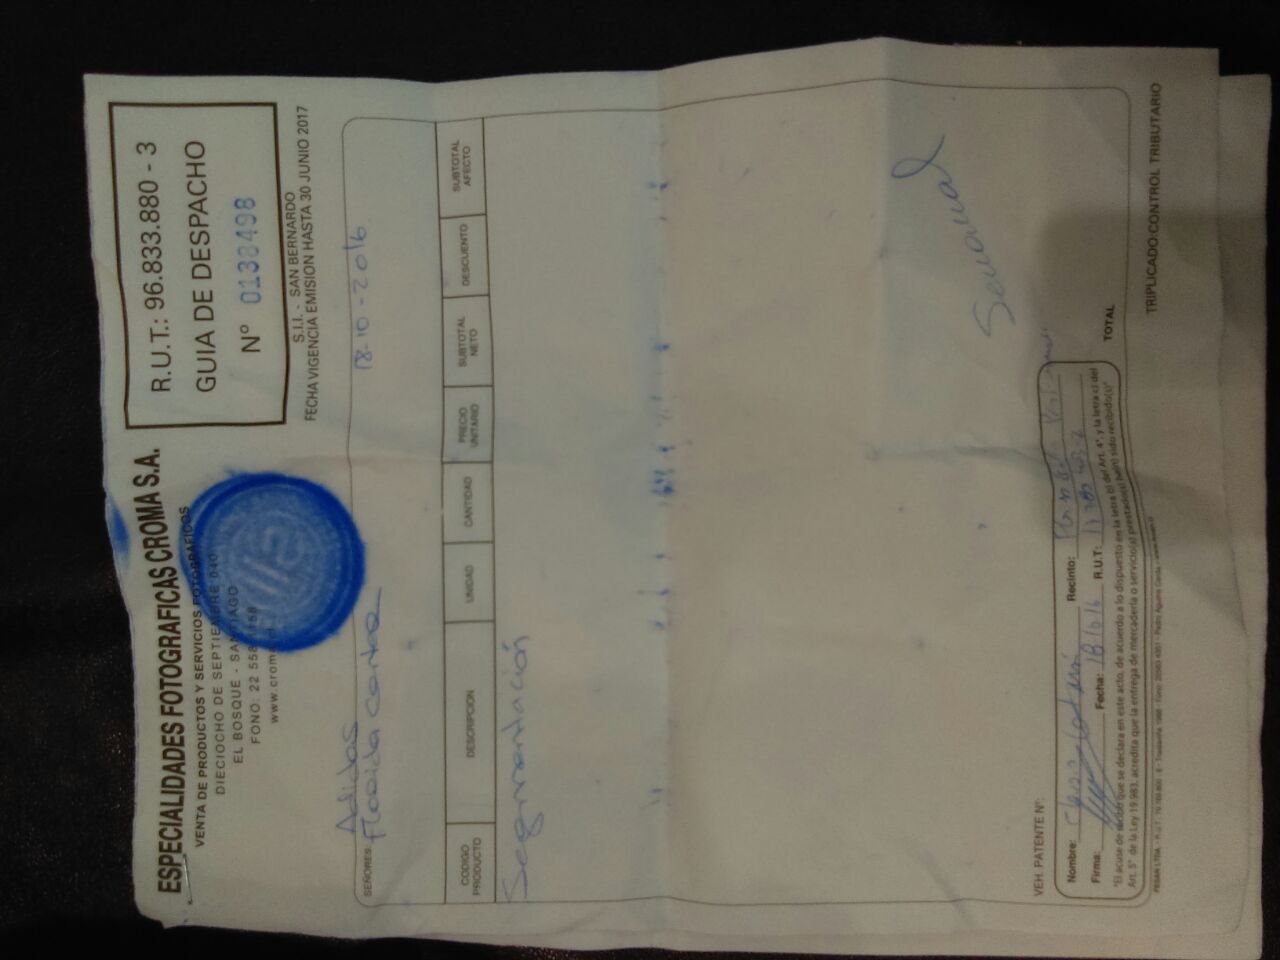 ESPECIALIDADES FOTOGRAFICAS CROMA S.A.
VENTA DE PRODUCTOS Y SERVICIOS FOTOGRAFICOS
DIECIOCHO DE SEPTIEMBRE 040
EL BOSQUE - SANTIAGO
FONO: 22 558 1158
www.croma.cl
R.U.T.: 96.833.880 - 3
GUIA DE DESPACHO
N° 0138498
S.I.I. - SAN BERNARDO
FECHA VIGENCIA EMISION HASTA 30 JUNIO 2017
Adidas
SEÑORES: Florida Center 18-10-2016
CODIGO PRODUCTO DESCRIPCION UNIDAD CANTIDAD PRECIO UNITARIO SUBTOTAL NETO DESCUENTO SUBTOTAL AFECTO
Segmentación
Semanal
VEH. PATENTE N°:
Nombre: Recinto:
Firma: Fecha: 18/10/16 R.U.T:
"El acuse de recibo que se declara en este acto, de acuerdo a lo dispuesto en la letra b) del Art. 4°, y la letra c) del
Art. 5° de la Ley 19.983, acredita que la entrega de mercadería o servicio(s) prestado(s) ha(n) sido recibido(s)"
TOTAL
TRIPLICADO:CONTROL TRIBUTARIO